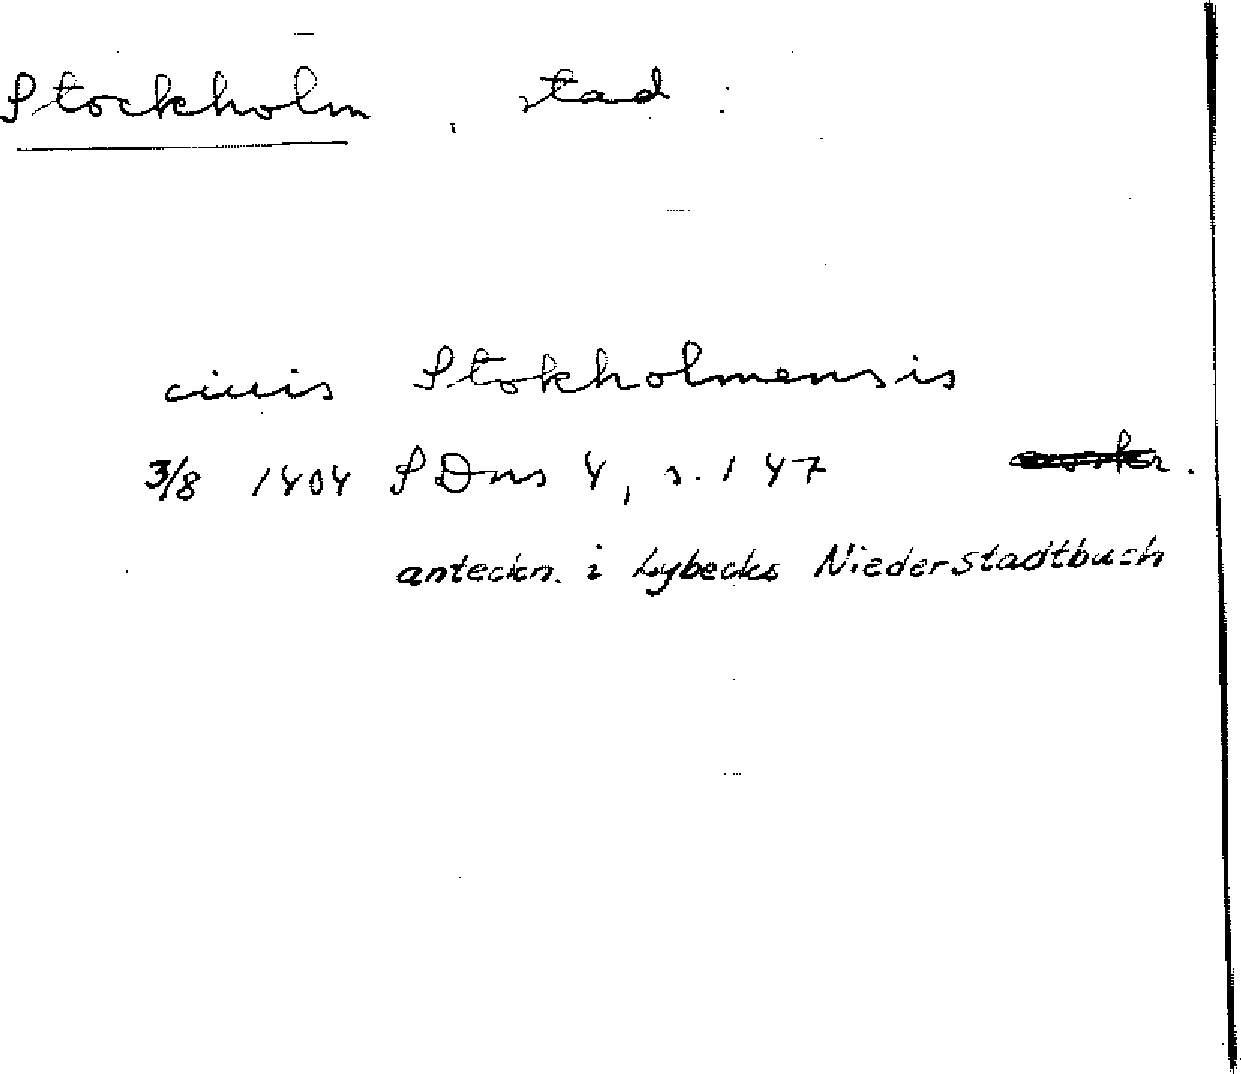 Stockholm, stad.
ciuis Stokholmensis
3/8 1404 SDns 4, s. 147
anteckn. i Lybecks Niederstadtbuch